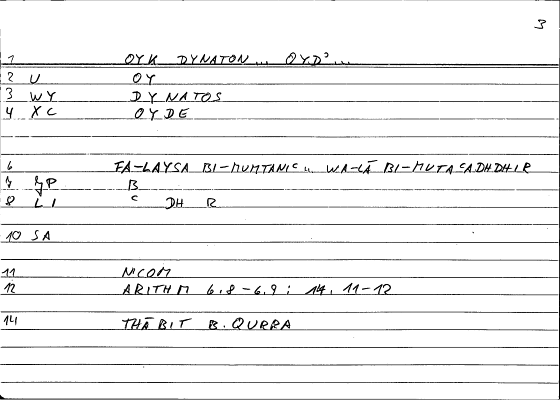 3
1 OYK DYNATON ... OYD' ...
2 U OY
3 WY DYNATOS
4 XC OYDE
6 FA-LAYSA BI-MUMTANIᶜ ... WA-LĀ BI-MUTAᶜADHDHIR
7 P B
8 LI ᶜ DH R
10 SA
11 NICOM
12 ARITHM 6.8-6.9 ; 14. 11-12
14 THĀBIT B. QURRA